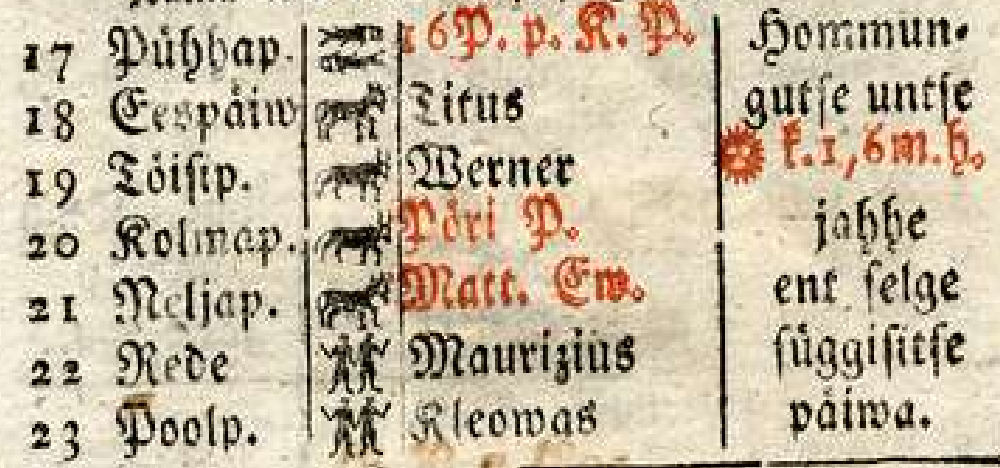 17 Pühhap. 16 P. p. K. P. Hommun-
18 Eespäiw Titus gutse untse
19 Töisip. Werner k. 1, 6 m. h.
20 Kolmap. Pöri P. jahhe
21 Neljap. Matt. Ew. ent selge
22 Rede Maurizius süggisitse
23 Poolp. Kleowas päiwa.